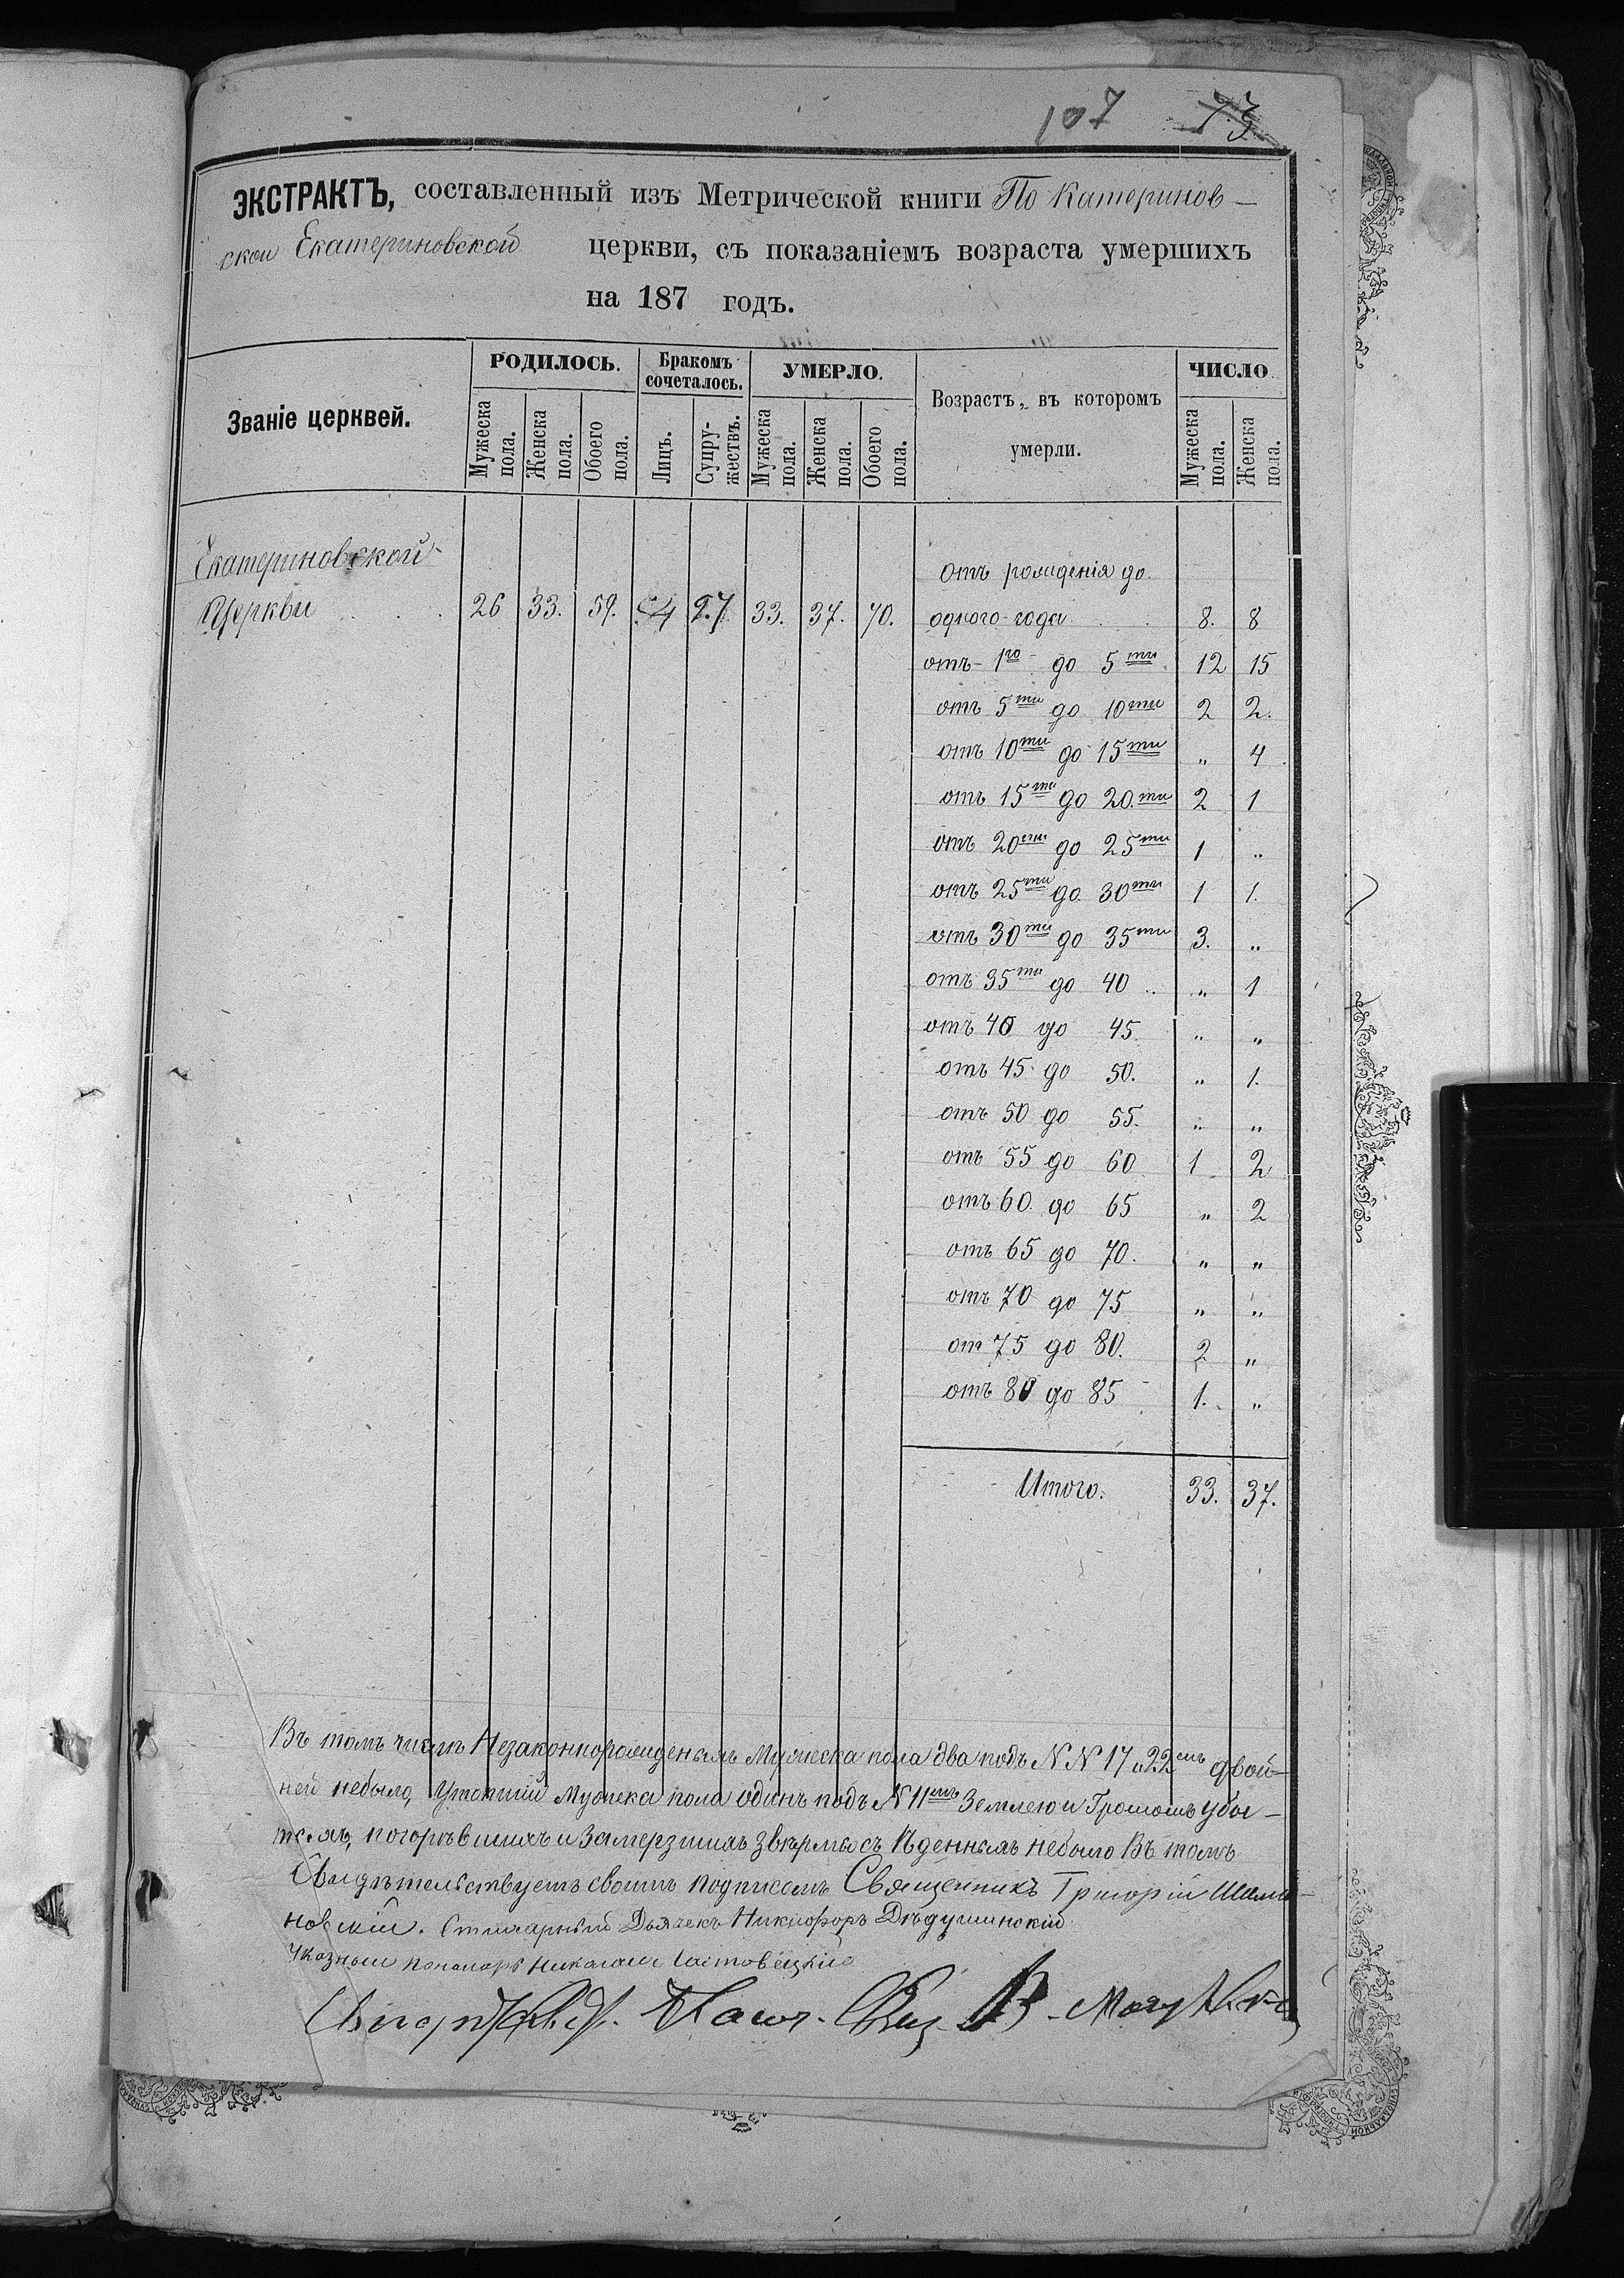 107 73
ЭКСТРАКТЪ, составленный изъ Метрической книги По Катеринов-
ской Екатериновской церкви, съ показаніемъ возраста умершихъ
на 187 годъ.
Званіе церквей.
РОДИЛОСЬ.
Бракомъ сочеталось.
УМЕРЛО.
Возрастъ, въ которомъ умерли.
ЧИСЛО
Мужеска пола. Женска пола. Обоего пола. Лицъ. Супру-жествъ. Мужеска пола. Женска пола. Обоего пола. Мужеска пола. Женска пола.
Екатериновской
Церкви 26 33. 59. 54 27. 33. 37. 70.
Отъ рожденія до
одного года 8. 8
отъ 1го до 5ти 12 15
отъ 5ти до 10ти 2 2.
отъ 10ти до 15ти „ 4
отъ 15ти до 20.ти 2 1
отъ 20ти до 25ти 1 „
отъ 25ти до 30ти 1 1.
отъ 30ти до 35ти 3. „
отъ 35ти до 40 „ 1
отъ 40 до 45. „ „
отъ 45 до 50. „ 1.
отъ 50 до 55. „ „
отъ 55 до 60 1 2
отъ 60. до 65 „ 2
отъ 65 до 70. „ „
отъ 70 до 75 „ „
от 75 до 80. 2 „
отъ 80 до 85 1. „
Итого. 33. 37.
Въ томъ числѣ Незаконнорожденныхъ Мужеска пола два подъ N N 17 и 22емъ двой-
ней небыло, Утопшій Мужеска пола одинъ подъ N 11емъ Землею и Громомъ убы-
тыхъ, погорѣвшихъ и замерзшихъ звѣрьмы съѣденныхъ небыло Въ томъ
Свидѣтельствуетъ своимъ подписомъ Священникъ Григорій
новскій. Стихарный Дьячекъ Никифоръ Дѣдушинскій
Указный Пономарь Николай